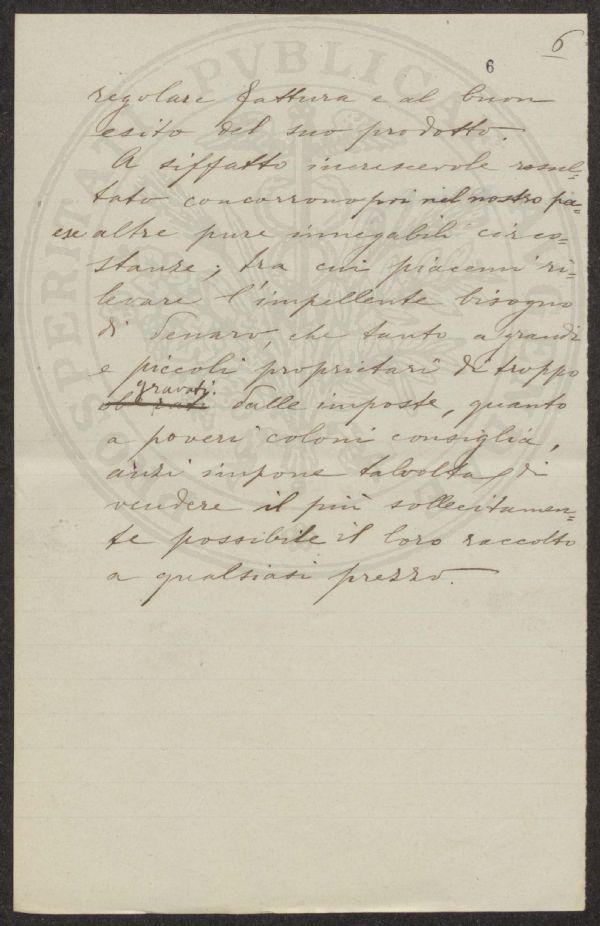 6
6
regolare fattura e al buon
esito del suo prodotto.
A siffatto increscevole resul=
tato concorrono poi nel nostro pa=
ese altre pure innegabili circo=
stanze; tra cui piacemi ri=
levare l'impellente bisogno
di denaro, che tanto a grandi
e piccoli proprietari di troppo
gravati
dalle imposte, quanto
a poveri coloni consiglia,
anzi impone talvolta di
vendere il più sollecitamen=
te possibile il loro raccolto
a qualsiasi prezzo.
PROSPERITATI PVBLICAE